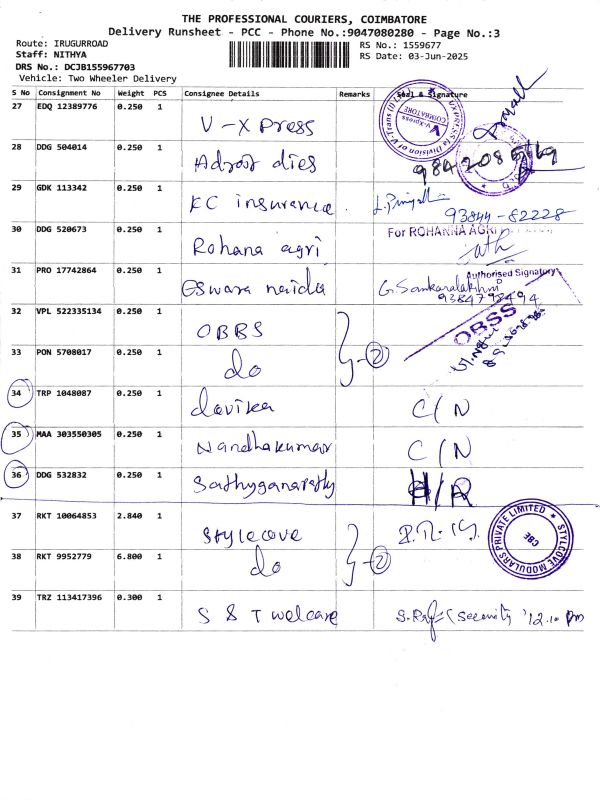 THE PROFESSIONAL COURIERS, COIMBATORE
Delivery Runsheet - PCC - Phone No.:9047080280 - Page No.:3
Route: IRUGURROAD
Staff: NITHYA
DRS No.: DCJB155967703
Vehicle: Two Wheeler Delivery
RS No.: 1559677
RS Date: 03-Jun-2025
S No Consignment No Weight PCS Consignee Details Remarks Seal & Signature
27 EDQ 12389776 0.250 1 V-X press
COIMBATORE
28 DDG 504014 0.250 1 dies
29 GDK 113342 0.250 1 KC insurance 93844-82228
30 DDG 520673 0.250 1 Rohana agri For ROHANNA AGRI
Authorised Signatory
31 PRO 17742864 0.250 1 Eswara naidu G. Sankaralakhmi
9384798494
32 VPL 522335134 0.250 1 OBBS 2
OBSS
33 PON 5708017 0.250 1 do
34 TRP 1048087 0.250 1 davika C/N
35 MAA 303550305 0.250 1 Nandhakumar C/N
36 DDG 532832 0.250 1 H/R
37 RKT 10064853 2.840 1 Stylecove 2
STYLCOVE MODULARS PRIVATE LIMITED
CBE
38 RKT 9952779 6.800 1 do
39 TRZ 113417396 0.300 1 S & T welcare (Security 12.10 pm